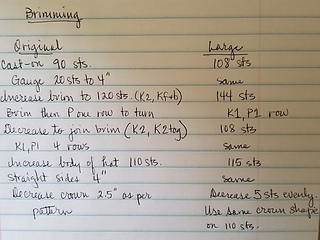 Brimming
Original Large
Cast-on 90 sts. 108 sts.
Gauge 20 sts to 4" same
Increase brim to 120 sts. (K2, Kf+b) 144 sts
Brim then P one row to turn K1, P1 row
Decrease to join brim (K2, K2tog) 108 sts
K1, P1 4 rows same
Increase body of hat 110 sts. 115 sts
Straight sides 4" same
Decrease crown 2.5" as per Decrease 5 sts evenly.
pattern Use same crown shape
on 110 sts.